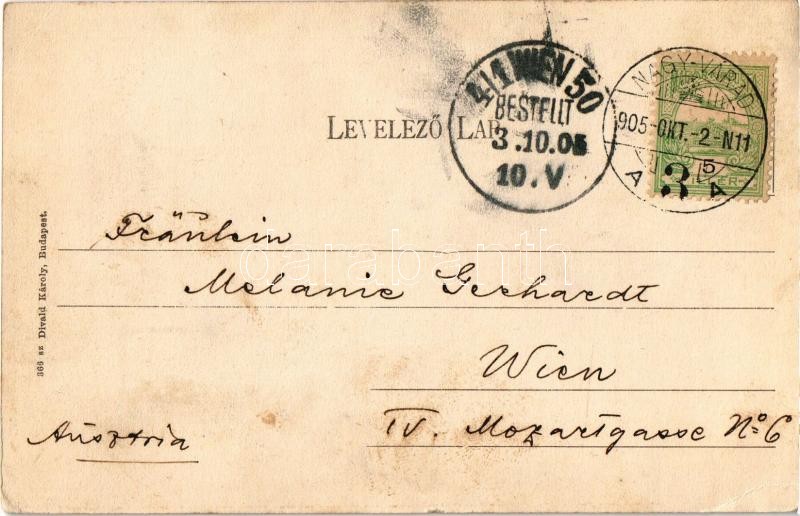 4/1 WIEN 50
BESTELLT
3.10.05
10.V
NAGY-VÁRAD
905-OKT.-2-N11
5
A A
3
LEVELEZŐ LAP
Fräulein
Melanie Gerhardt
Wien
IV. Mozartgasse No 6
Ausztria
366 sz Divald Károly, Budapest.
darabanth